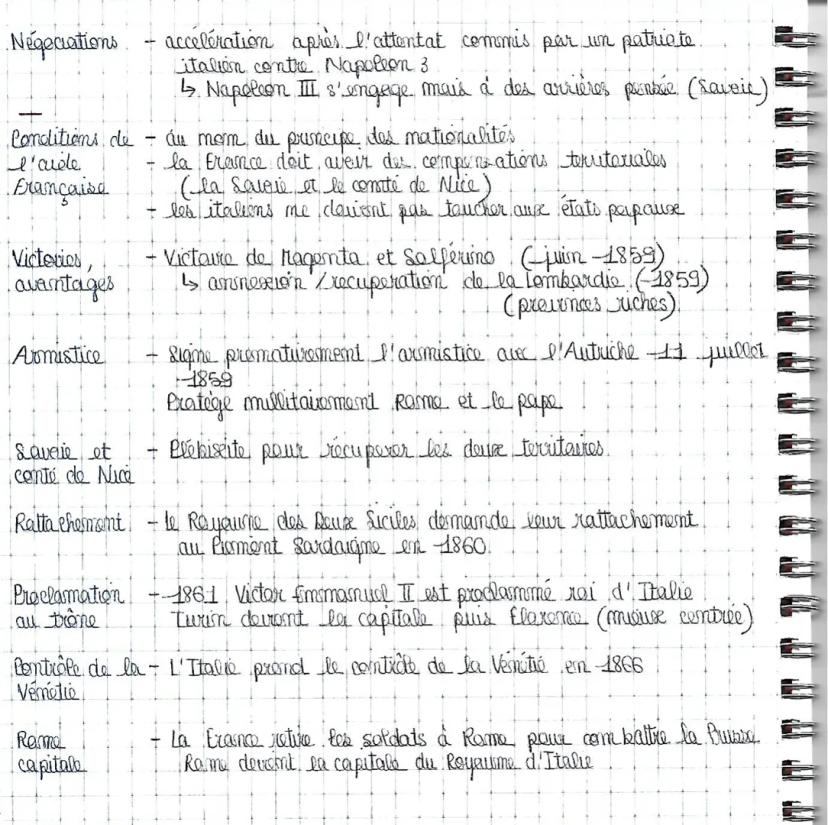 Négociations - accélération après l'attentat commis par un patriote
italien contre Napoléon 3
↳ Napoléon III s'engage mais à des arrières pensée (Savoie)
Conditions de - au nom du principe des nationalités
l'aide - la France doit avoir des compensations territoriales
Française (la Savoie et le comté de Nice)
- les italiens ne doivent pas toucher aux états papaux
Victoires, - Victoire de Magenta et Solférino (juin 1859)
avantages ↳ annexion / recuperation de la Lombardie (1859)
(provinces riches)
Armistice - Signe prematurement l'armistice avec l'Autriche 11 juillet
1859
Protège millitairement Rome et le pape
Savoie et - Plébiscite pour récuperer les deux territoires
conté de Nice
Rattachement - le Royaume des Deux Siciles demande leur rattachement
au Piémont Sardaigne en 1860.
Proclamation - 1861 Victor Emmanuel II est proclammé roi d'Italie
au trône Turin devient la capitale puis Florence (mieux centrée)
Contrôle de la - L'Italie prend le contrôle de la Vénétie en 1866
Vénétie
Rome - La France retire les soldats à Rome pour combattre la Prusse
capitale Rome devient la capitale du Royaume d'Italie